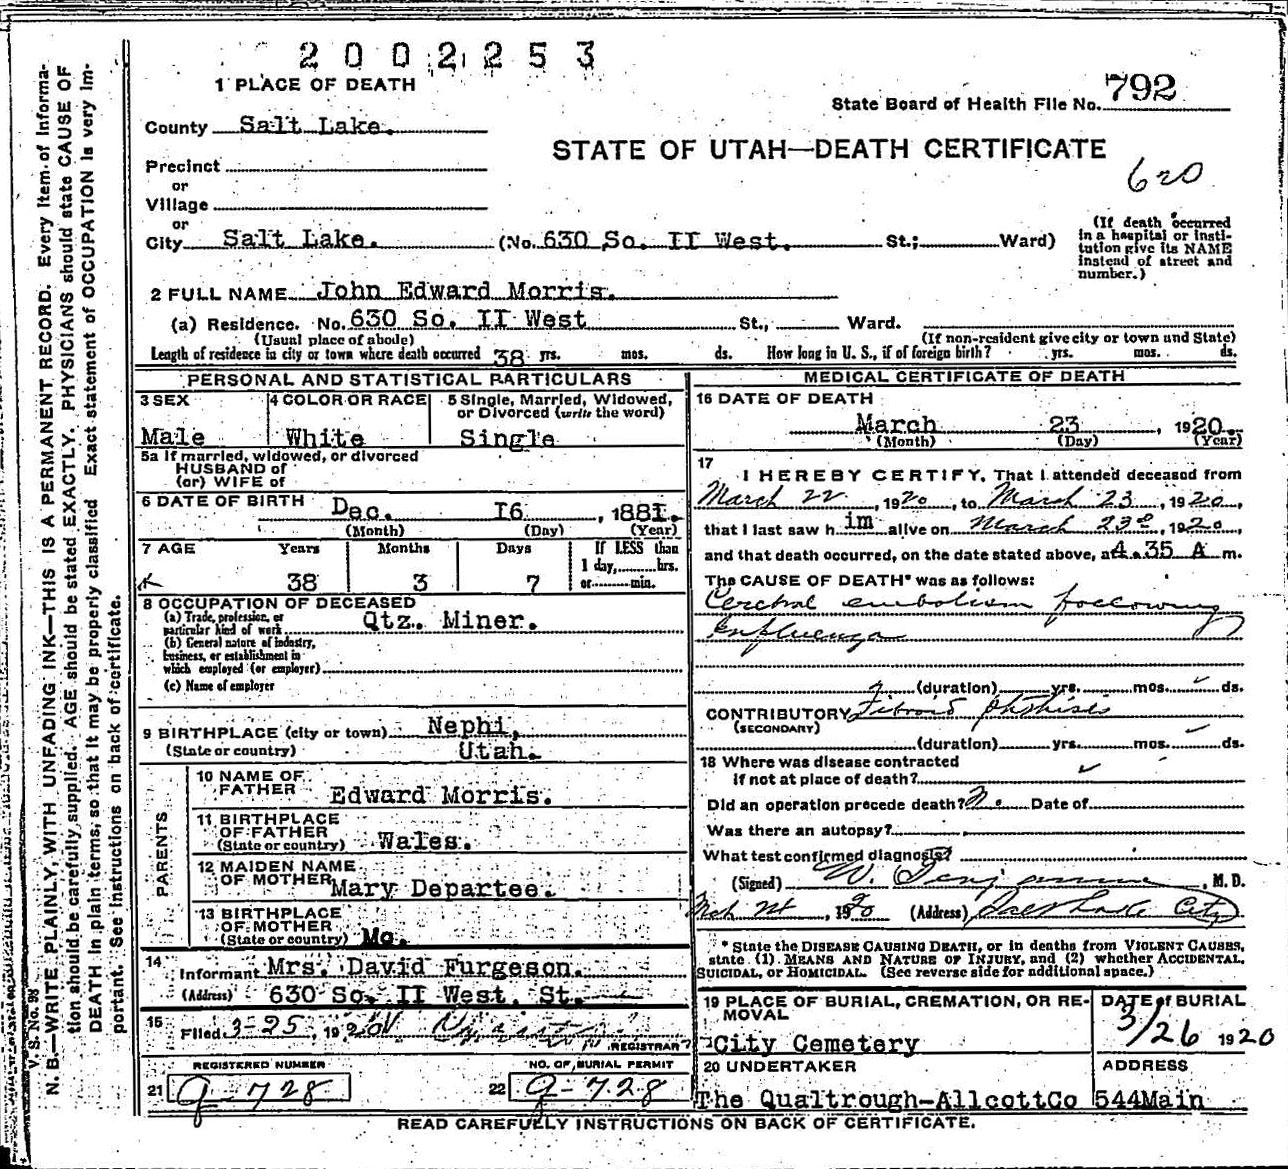 2002253
1 PLACE OF DEATH
State Board of Health File No. 792
County Salt Lake.
STATE OF UTAH—DEATH CERTIFICATE
620
Precinct
or
Village
or
City Salt Lake. (No. 630 So. II West. St.; Ward)
(If death occurred
in a hospital or insti-
tution give its NAME
instead of street and
number.)
2 FULL NAME John Edward Morris.
(a) Residence. No. 630 So. II West St., Ward.
(Usual place of abode) (If non-resident give city or town and State)
Length of residence in city or town where death occurred 38 yrs. mos. ds. How long in U. S., if of foreign birth? yrs. mos. ds.
PERSONAL AND STATISTICAL PARTICULARS
3 SEX
Male
4 COLOR OR RACE
White
5 Single, Married, Widowed,
or Divorced (write the word)
Single
5a If married, widowed, or divorced
HUSBAND of
(or) WIFE of
6 DATE OF BIRTH Dec. I6 , 188I.
(Month) (Day) (Year)
7 AGE Years Months Days If LESS than
1 day, hrs.
38 3 7 or min.
8 OCCUPATION OF DECEASED
(a) Trade, profession, or
particular kind of work Qtz. Miner.
(b) General nature of industry,
business, or establishment in
which employed (or employer)
(c) Name of employer
9 BIRTHPLACE (city or town) Nephi,
(State or country) Utah.
PARENTS
10 NAME OF
FATHER Edward Morris.
11 BIRTHPLACE
OF FATHER
(State or country) Wales.
12 MAIDEN NAME
OF MOTHER Mary Departee.
13 BIRTHPLACE
OF MOTHER
(State or country) Mo.
14 Informant Mrs. David Furgeson.
(Address) 630 So. II West. St.
15 Filed 3-25, 1920
REGISTRAR
REGISTERED NUMBER
21 9-728
NO. OF BURIAL PERMIT
22 9-728
MEDICAL CERTIFICATE OF DEATH
16 DATE OF DEATH
March 23 , 1920.
(Month) (Day) (Year)
17 I HEREBY CERTIFY, That I attended deceased from
March 22, 1920, to March 23, 1920,
that I last saw him alive on March 23d, 1920,
and that death occurred, on the date stated above, at 4.35 A m.
The CAUSE OF DEATH* was as follows:
Cerebral embolism following
Influenza
(duration) yrs. mos. ds.
CONTRIBUTORY Fibroid phthisis
(SECONDARY)
(duration) yrs. mos. ds.
18 Where was disease contracted
if not at place of death?
Did an operation precede death? No. Date of
Was there an autopsy?
What test confirmed diagnosis?
(Signed) W. , M. D.
Mch 24, 1920 (Address) Salt Lake City
* State the DISEASE CAUSING DEATH, or in deaths from VIOLENT CAUSES,
state (1) MEANS AND NATURE OF INJURY, and (2) whether ACCIDENTAL,
SUICIDAL, or HOMICIDAL. (See reverse side for additional space.)
19 PLACE OF BURIAL, CREMATION, OR RE-
MOVAL
City Cemetery
DATE of BURIAL
3/26 1920
20 UNDERTAKER
The Qualtrough-AllcottCo
ADDRESS
544Main
READ CAREFULLY INSTRUCTIONS ON BACK OF CERTIFICATE.
V. S. No. 98
N. B.—WRITE PLAINLY, WITH UNFADING INK—THIS IS A PERMANENT RECORD. Every item of informa-
tion should be carefully supplied. AGE should be stated EXACTLY. PHYSICIANS should state CAUSE OF
DEATH in plain terms, so that it may be properly classified Exact statement of OCCUPATION is very im-
portant. See instructions on back of certificate.